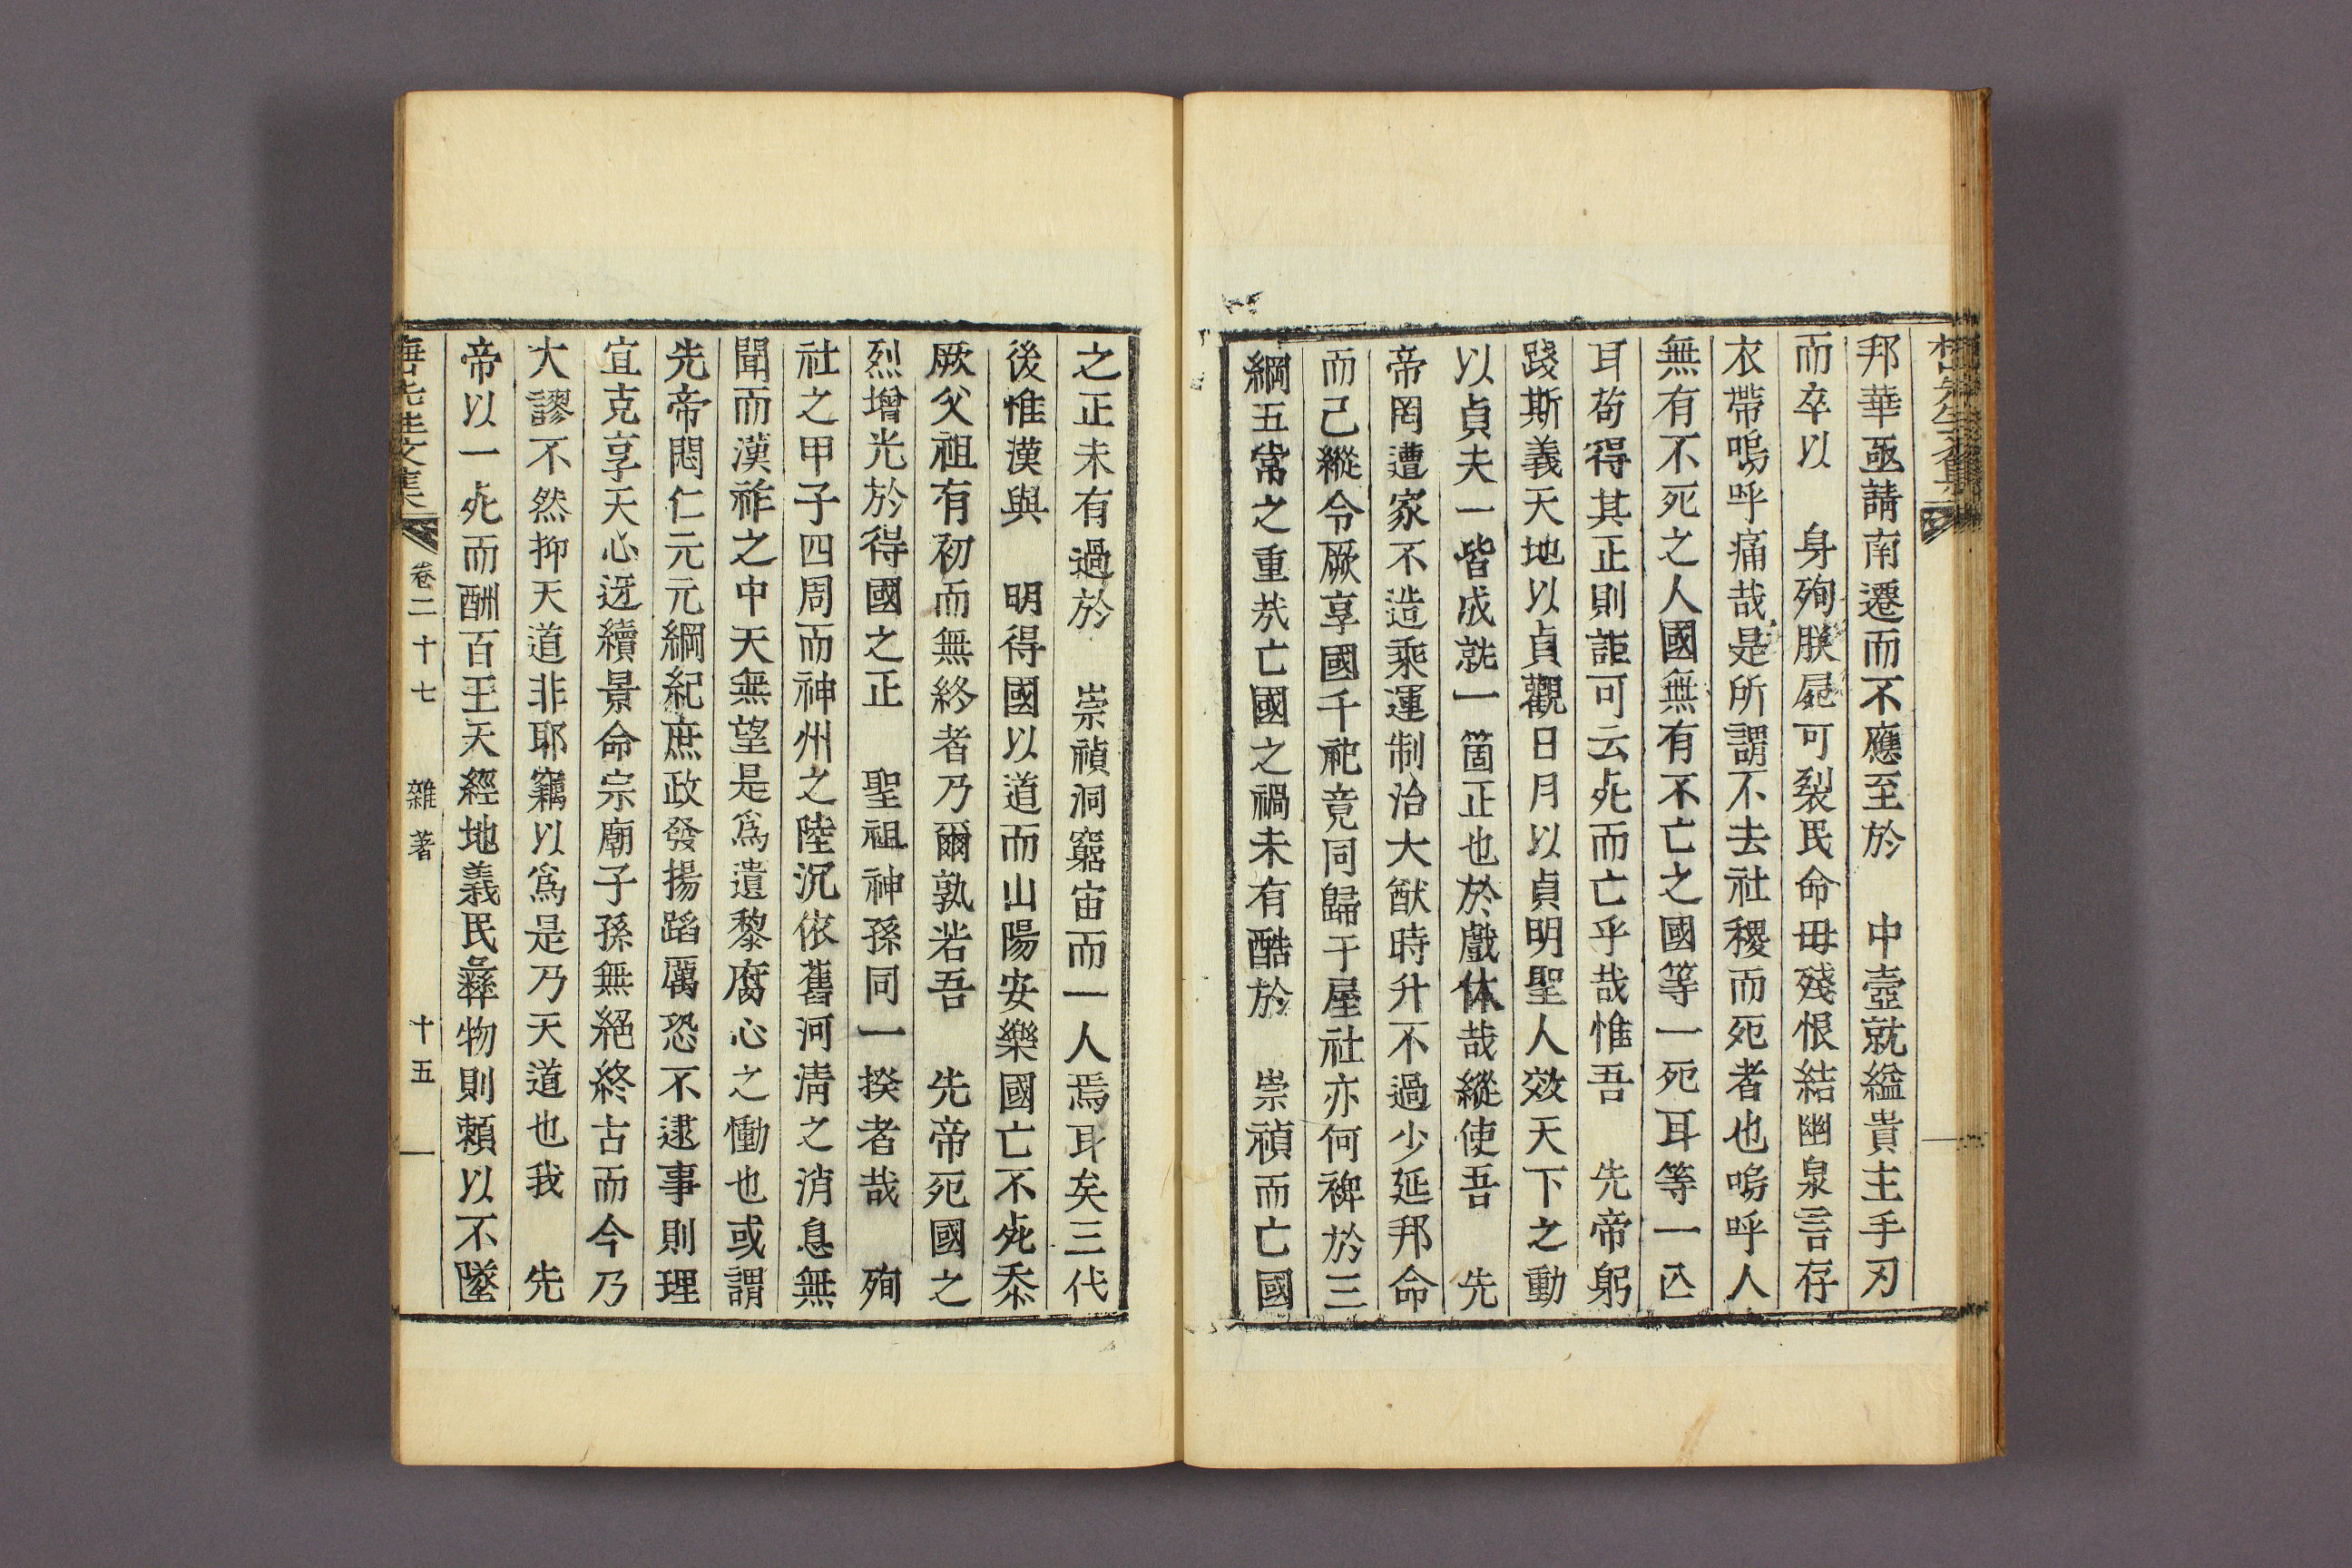 梅山先生文集
邦華亟請南遷而不應至於　中壼就縊貴主手刃
而卒以　身殉朕屍可裂民命毋殘恨結幽泉言存
衣帶嗚呼痛哉是所謂不去社稷而死者也嗚呼人
無有不死之人國無有不亡之國等一死耳等一亡
耳苟得其正則詎可云死而亡乎哉惟吾　先帝躬
踐斯義天地以貞觀日月以貞明聖人效天下之動
以貞夫一皆成就一箇正也於戲休哉縱使吾　先
帝罔遭家不造乘運制治大猷時升不過少延邦命
而己縱令厥享國千祀竟同歸于屋社亦何裨於三
綱五常之重哉亡國之禍未有酷於　崇禎而亡國
之正未有過於　崇禎洞窮宙而一人焉耳矣三代
後惟漢與　明得國以道而山陽安樂國亡不死忝
厥父祖有初而無終者乃爾孰若吾　先帝死國之
烈增光於得國之正　聖祖神孫同一揆者哉　殉
社之甲子四周而神州之陸沉依舊河淸之消息無
聞而漢祚之中天無望是爲遺黎腐心之慟也或謂
先帝悶仁元元綱紀庶政發揚蹈厲恐不逮事則理
宜克享天心迓續景命宗廟子孫無絕終古而今乃
大謬不然抑天道非耶竊以爲是乃天道也我　先
帝以一死而酬百王天經地義民彛物則賴以不墜
梅山先生文集　卷二十七　雜著　十五